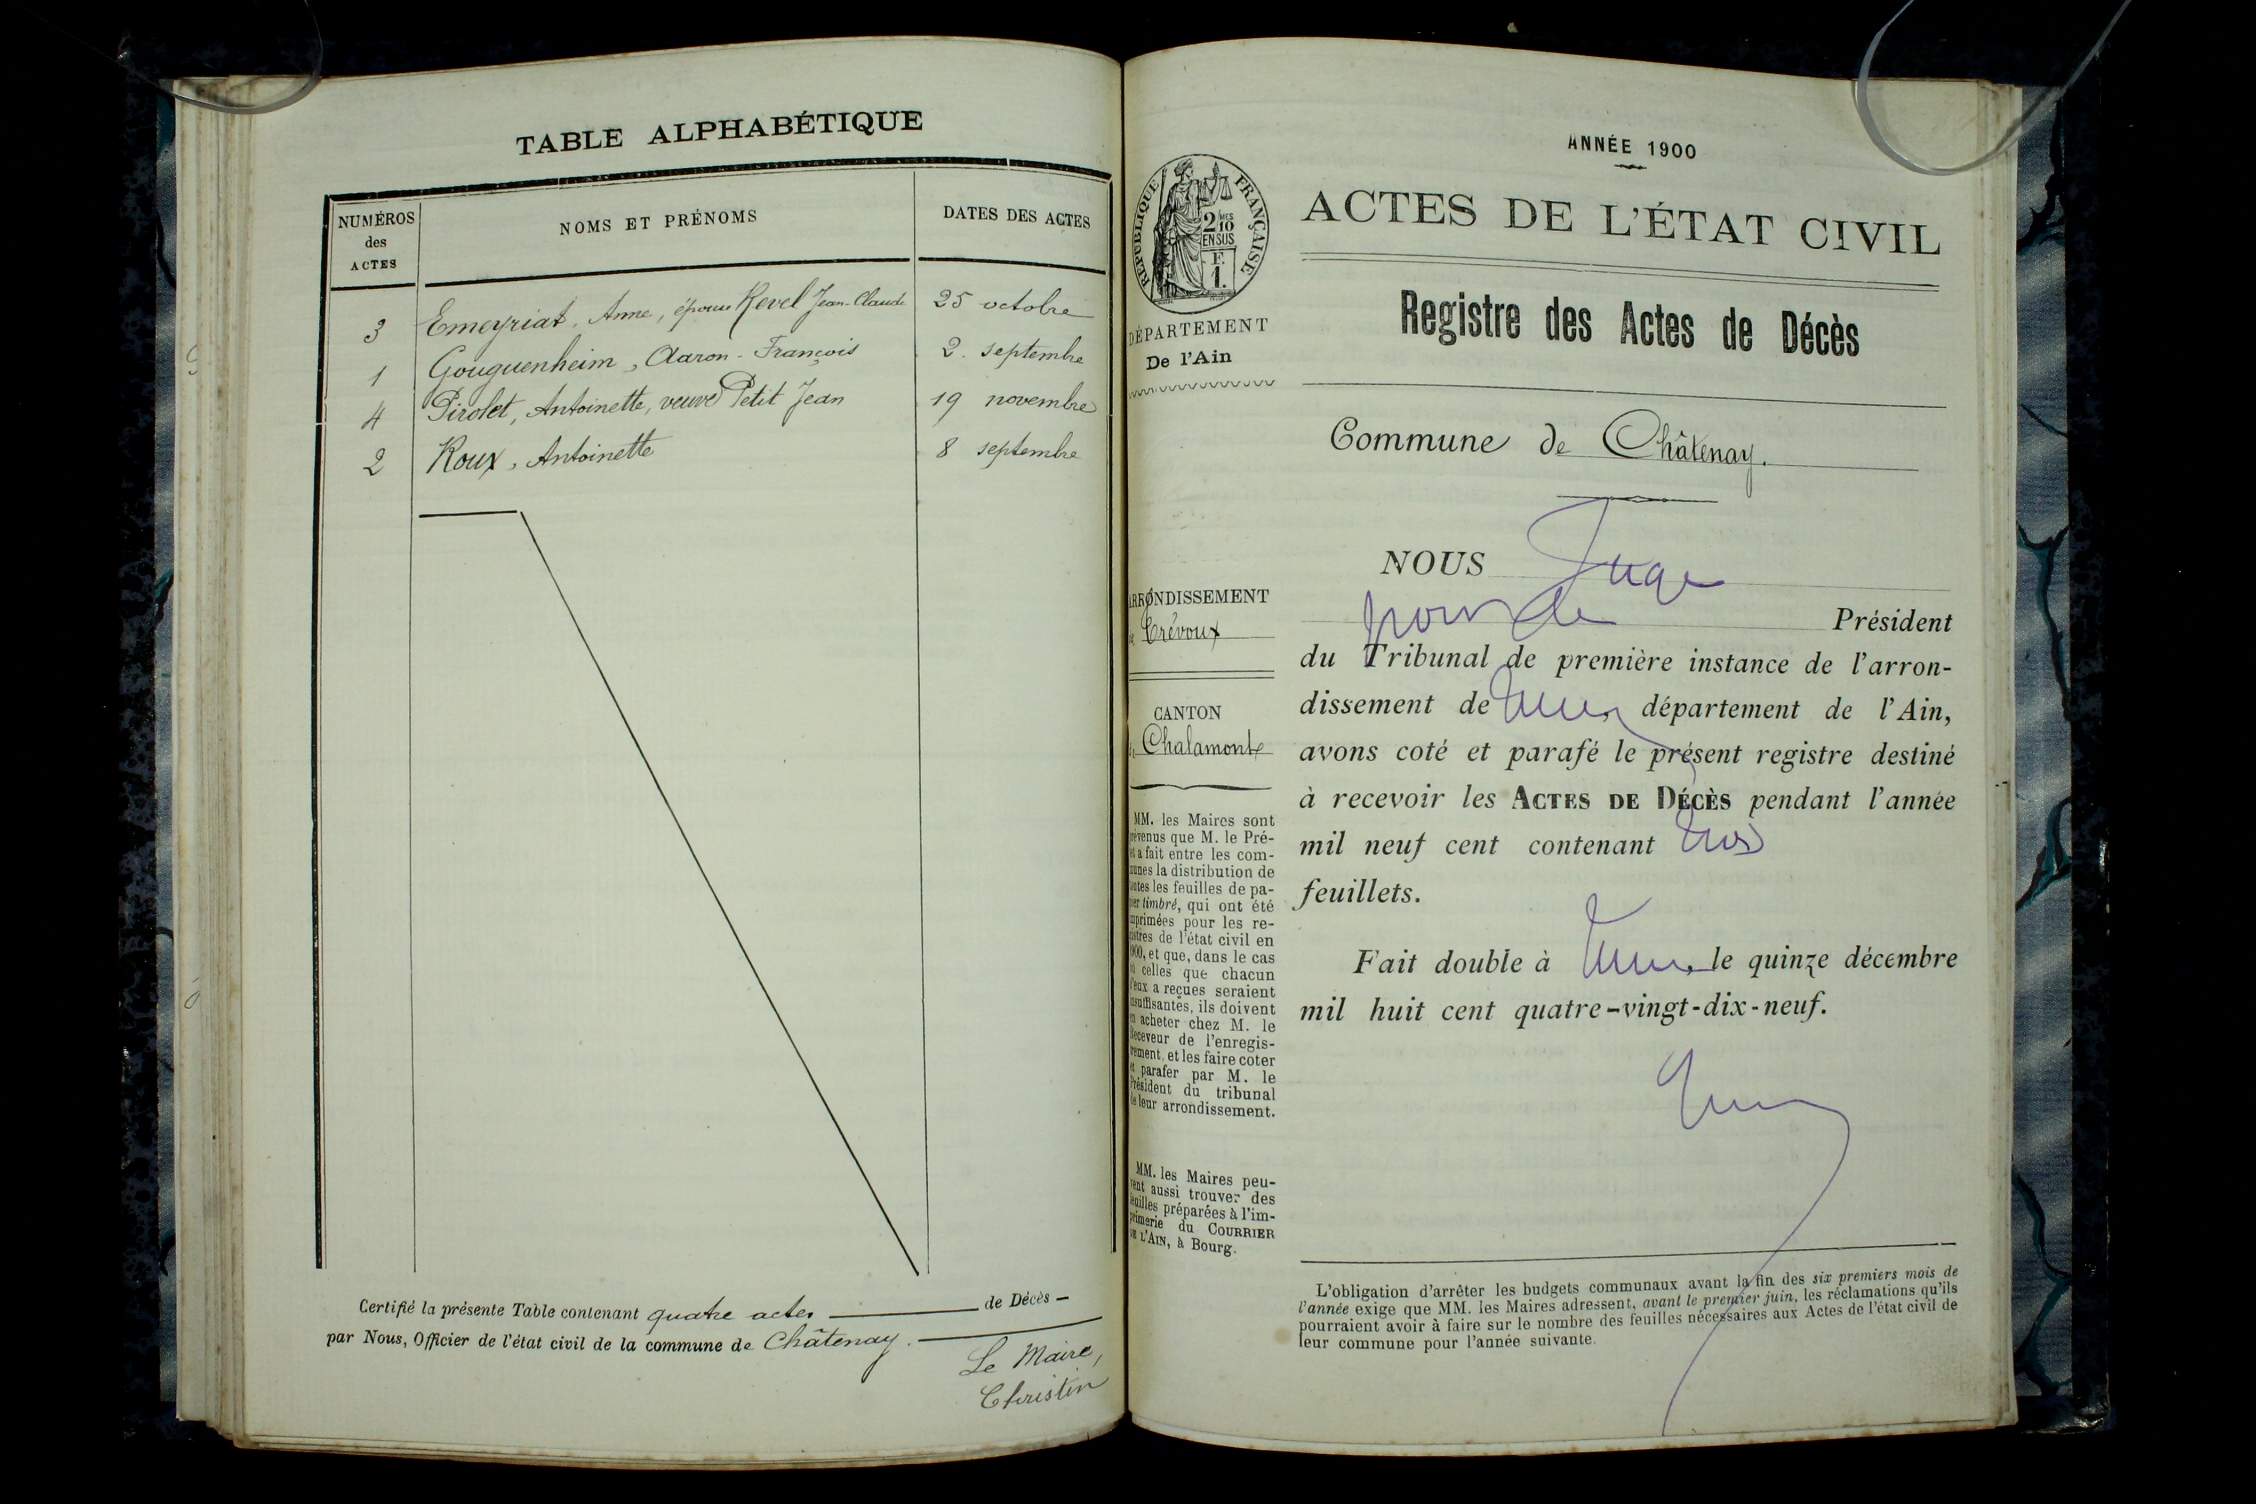 TABLE ALPHABÉTIQUE
NUMÉROS
des
ACTES
NOMS ET PRÉNOMS
DATES DES ACTES
3 Emeyriat, Anne, épouse Revel Jean-Claude 25 octobre
1 Gouguenheim, Aaron-François 2 septembre
4 Pirolet, Antoinette, veuve Petit Jean 19 novembre
2 Roux, Antoinette 8 septembre
Certifié la présente Table contenant quatre actes de Décès —
par Nous, Officier de l'état civil de la commune de Châtenay.
Le Maire,
Christin
RÉPUBLIQUE FRANÇAISE
2/10 MES
EN SUS
F.
1.
DÉPARTEMENT
De l'Ain
ARRONDISSEMENT
de Trévoux
CANTON
de Chalamont
MM. les Maires sont
prévenus que M. le Pré-
fet a fait entre les com-
munes la distribution de
toutes les feuilles de pa-
pier timbré, qui ont été
imprimées pour les re-
gistres de l'état civil en
1900, et que, dans le cas
où celles que chacun
d'eux a reçues seraient
insuffisantes, ils doivent
en acheter chez M. le
Receveur de l'enregis-
trement, et les faire coter
et parafer par M. le
Président du tribunal
de leur arrondissement.
MM. les Maires peu-
vent aussi trouver des
feuilles préparées à l'im-
primerie du COURRIER
DE L'AIN, à Bourg.
ANNÉE 1900
ACTES DE L'ÉTAT CIVIL
Registre des Actes de Décès
Commune de Châtenay.
NOUS Juge
pour le Président
du Tribunal de première instance de l'arron-
dissement de département de l'Ain,
avons coté et parafé le présent registre destiné
à recevoir les ACTES DE DÉCÈS pendant l'année
mil neuf cent contenant trois
feuillets.
Fait double à le quinze décembre
mil huit cent quatre-vingt-dix-neuf.
L'obligation d'arrêter les budgets communaux avant la fin des six premiers mois de
l'année exige que MM. les Maires adressent, avant le premier juin, les réclamations qu'ils
pourraient avoir à faire sur le nombre des feuilles nécessaires aux Actes de l'état civil de
leur commune pour l'année suivante.